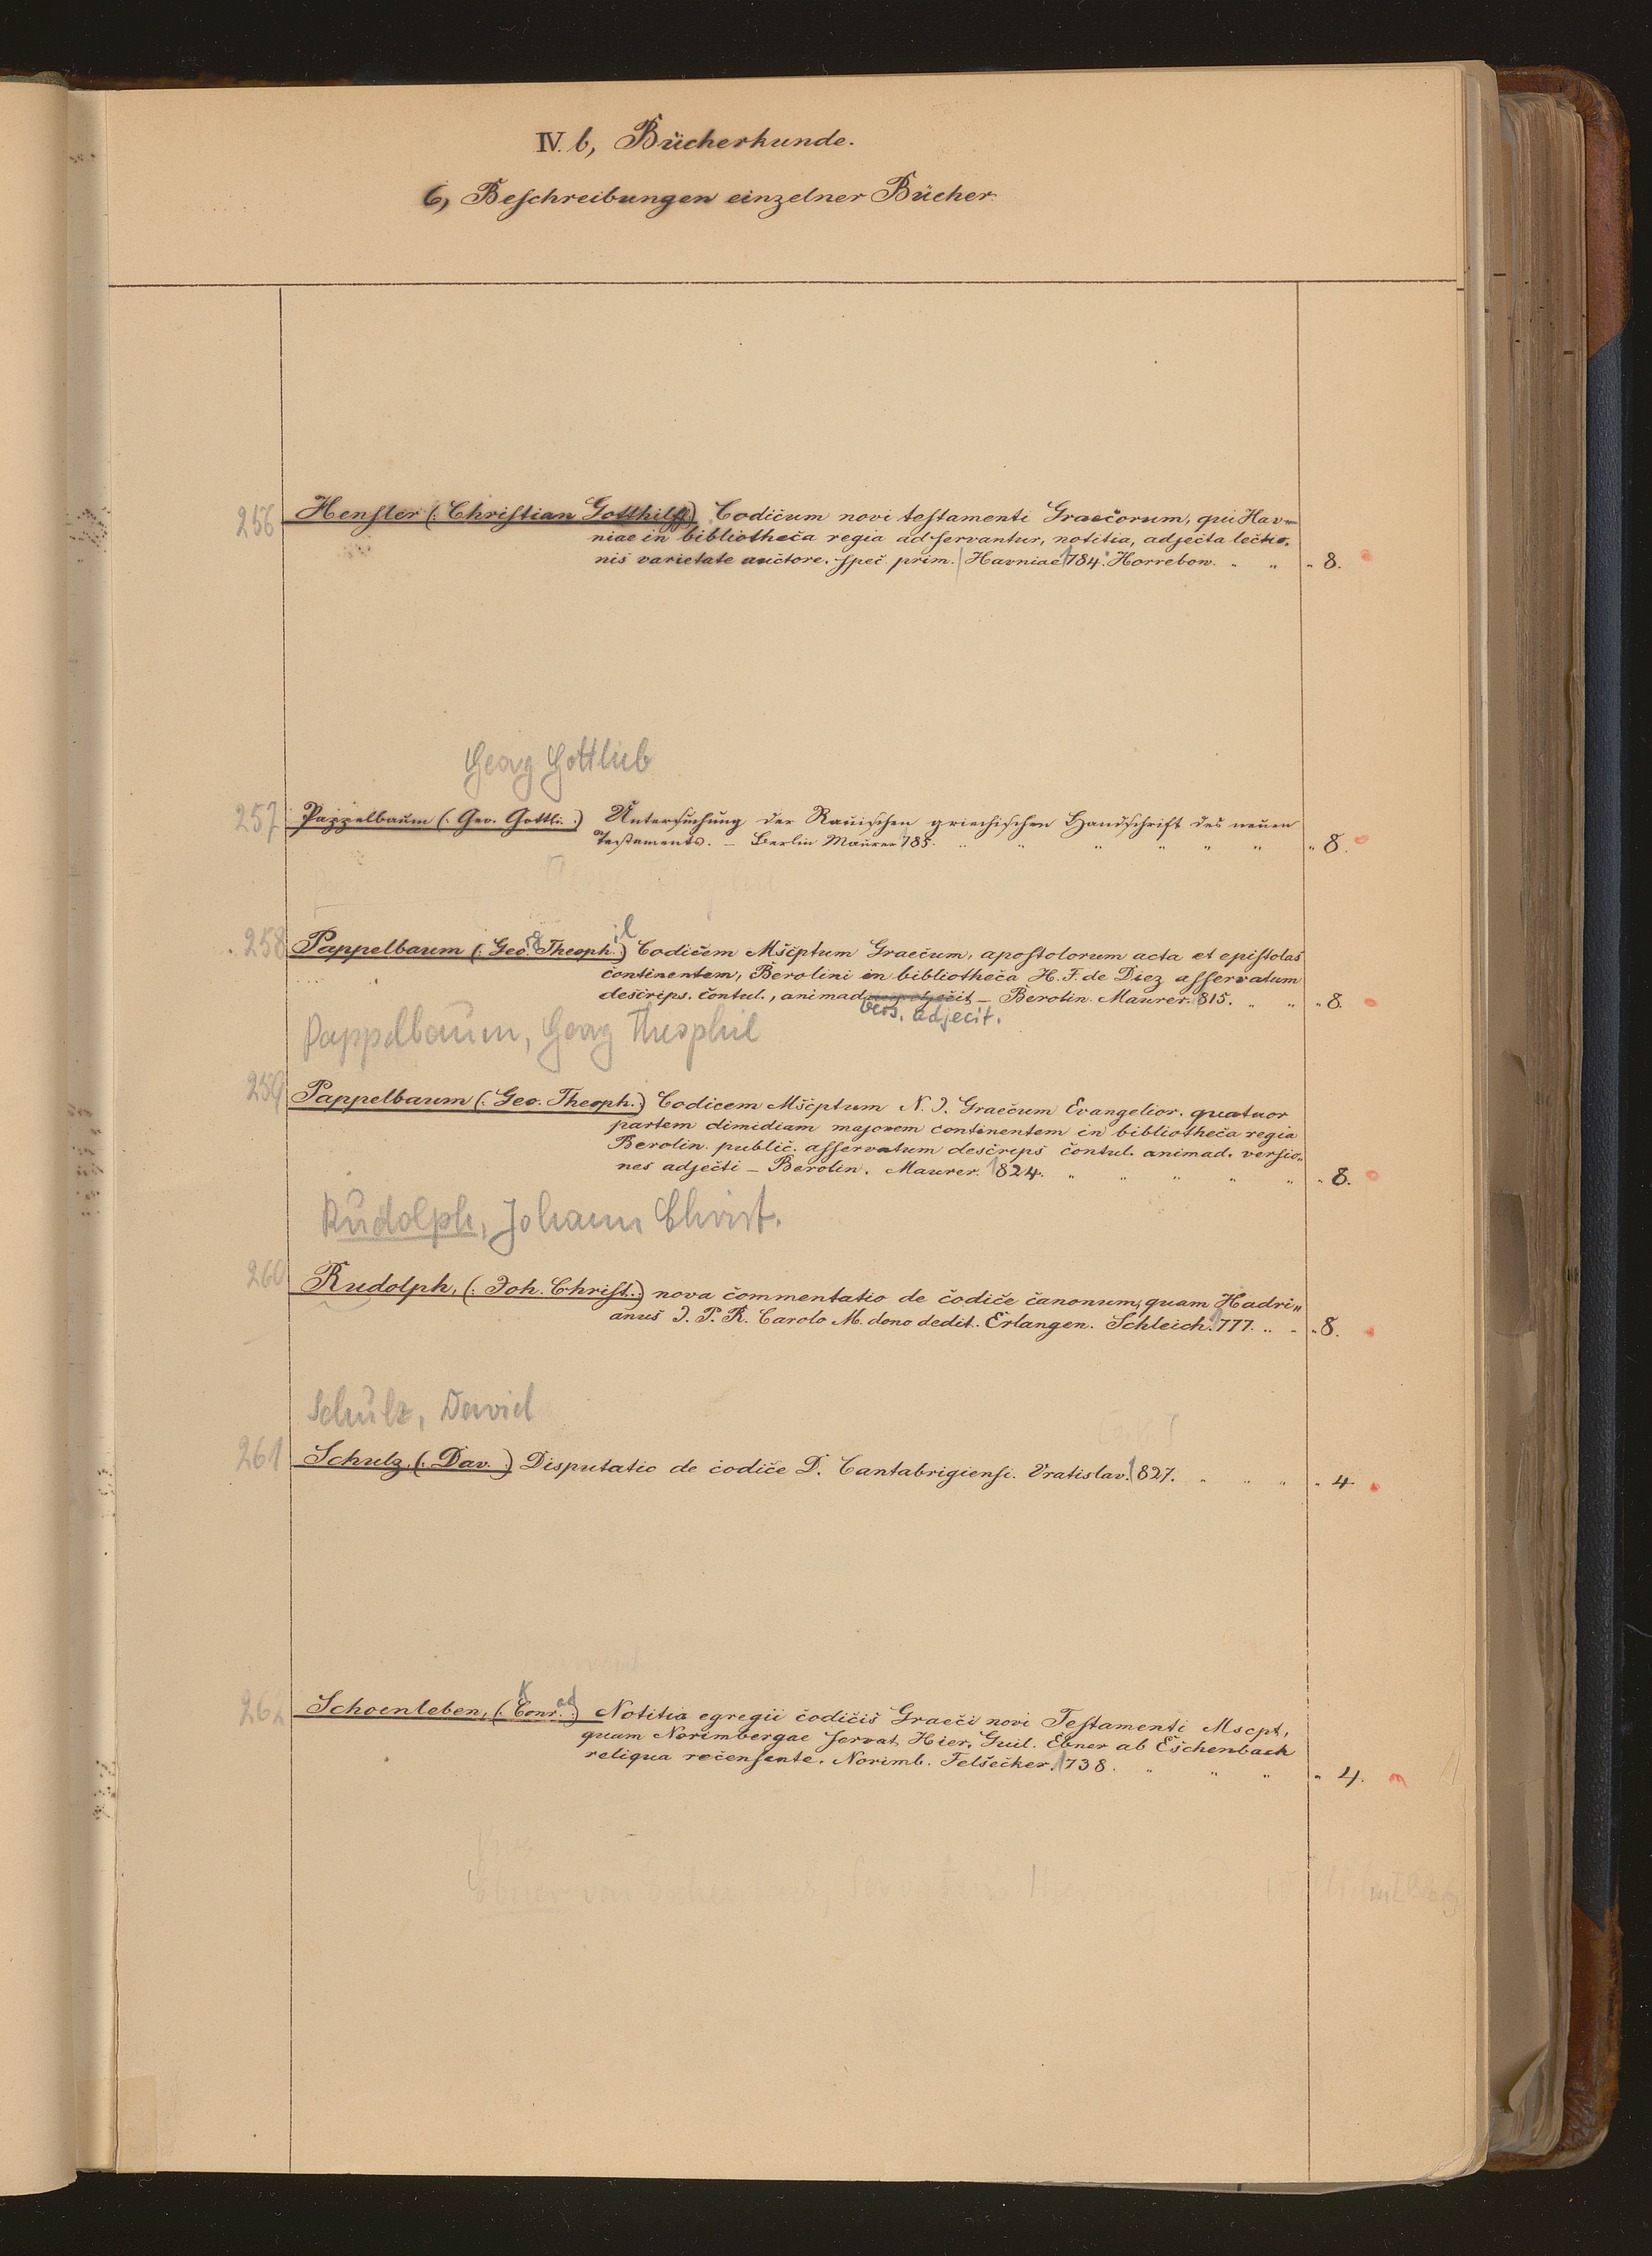 IV. b, Bücherkunde.
6, Beschreibungen einzelner Bücher.
256 Hensler (: Christian Gotthilff :) Codicum novi testamenti Graecorum, qui Hav-
niae in bibliotheca regia adservantur, notitia, adjecta lectio-
nis varietate auctore. spec. prim. Havniae 1784. Horrebow. " " " 8.
Georg Gottlieb
257 Pappelbaum (: Geo. Gottli. :) Untersuchung der Rauischen griechischen Handschrift des neuen
Testaments. – Berlin Maurer 1785. " " " " " " " 8.
258 Pappelbaum (: Geo. Theoph. :) Codicem Mscptum Graecum, apostolorum acta et epistolas
continentem, Berolini in bibliotheca H. F. de Diez asservatum
descrips. contul., animad – Berolin. Maurer. 1815. " " " 8.
vers. adjecit.
Pappelbaum, Georg Theophil
259 Pappelbaum (: Geo. Theoph. :) Codicem Mscptum N. T. Graecum Evangelior. quatuor
partem dimidiam majorem continentem in bibliotheca regia
Berolin. public. asservatum descrips contul. animad. versio„
nes adjecti – Berolin. Maurer. 1824. " " " " " " 8.
Rudolph, Johann Christ.
260 Rudolph, (: Joh. Christ. :) nova commentatio de codice canonum, quam Hadri„
anus I. P. R. Carolo M. dono dedit. Erlangen. Schleich. 1777. " " " 8.
Schulz, David
261 Schulz, (: Dav. :) Disputatio de codice D. Cantabrigiensi. Vratislav. 1827. " " " " 4.
K ad
262 Schoenleben, (: Conr. :) Notitia egregii codicis Graeci novi Testamenti Mscpt,
quam Norimbergae servat Hier. Guil. Ebner ab Eschenbach
reliqua recensente. Norimb. Felsecker. 1738. " " " " 4.